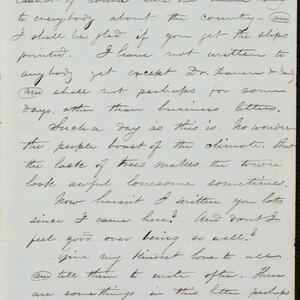 to everybody about the country – and
I shall be glad if you get the slips
printed. I have not written to
anybody yet except Dr. &
and shall not perhaps for some
days, other than business letters.
Such a day as this is. No wonder
the people boast of the climate. But
the lack of trees makes the town
look awful lonesome sometimes.
Now haven't I written you lots
since I came here? And don't I
feel good over being so well?
Give my kindest love to all
and tell them to write often. There
are some things in this letter perhaps